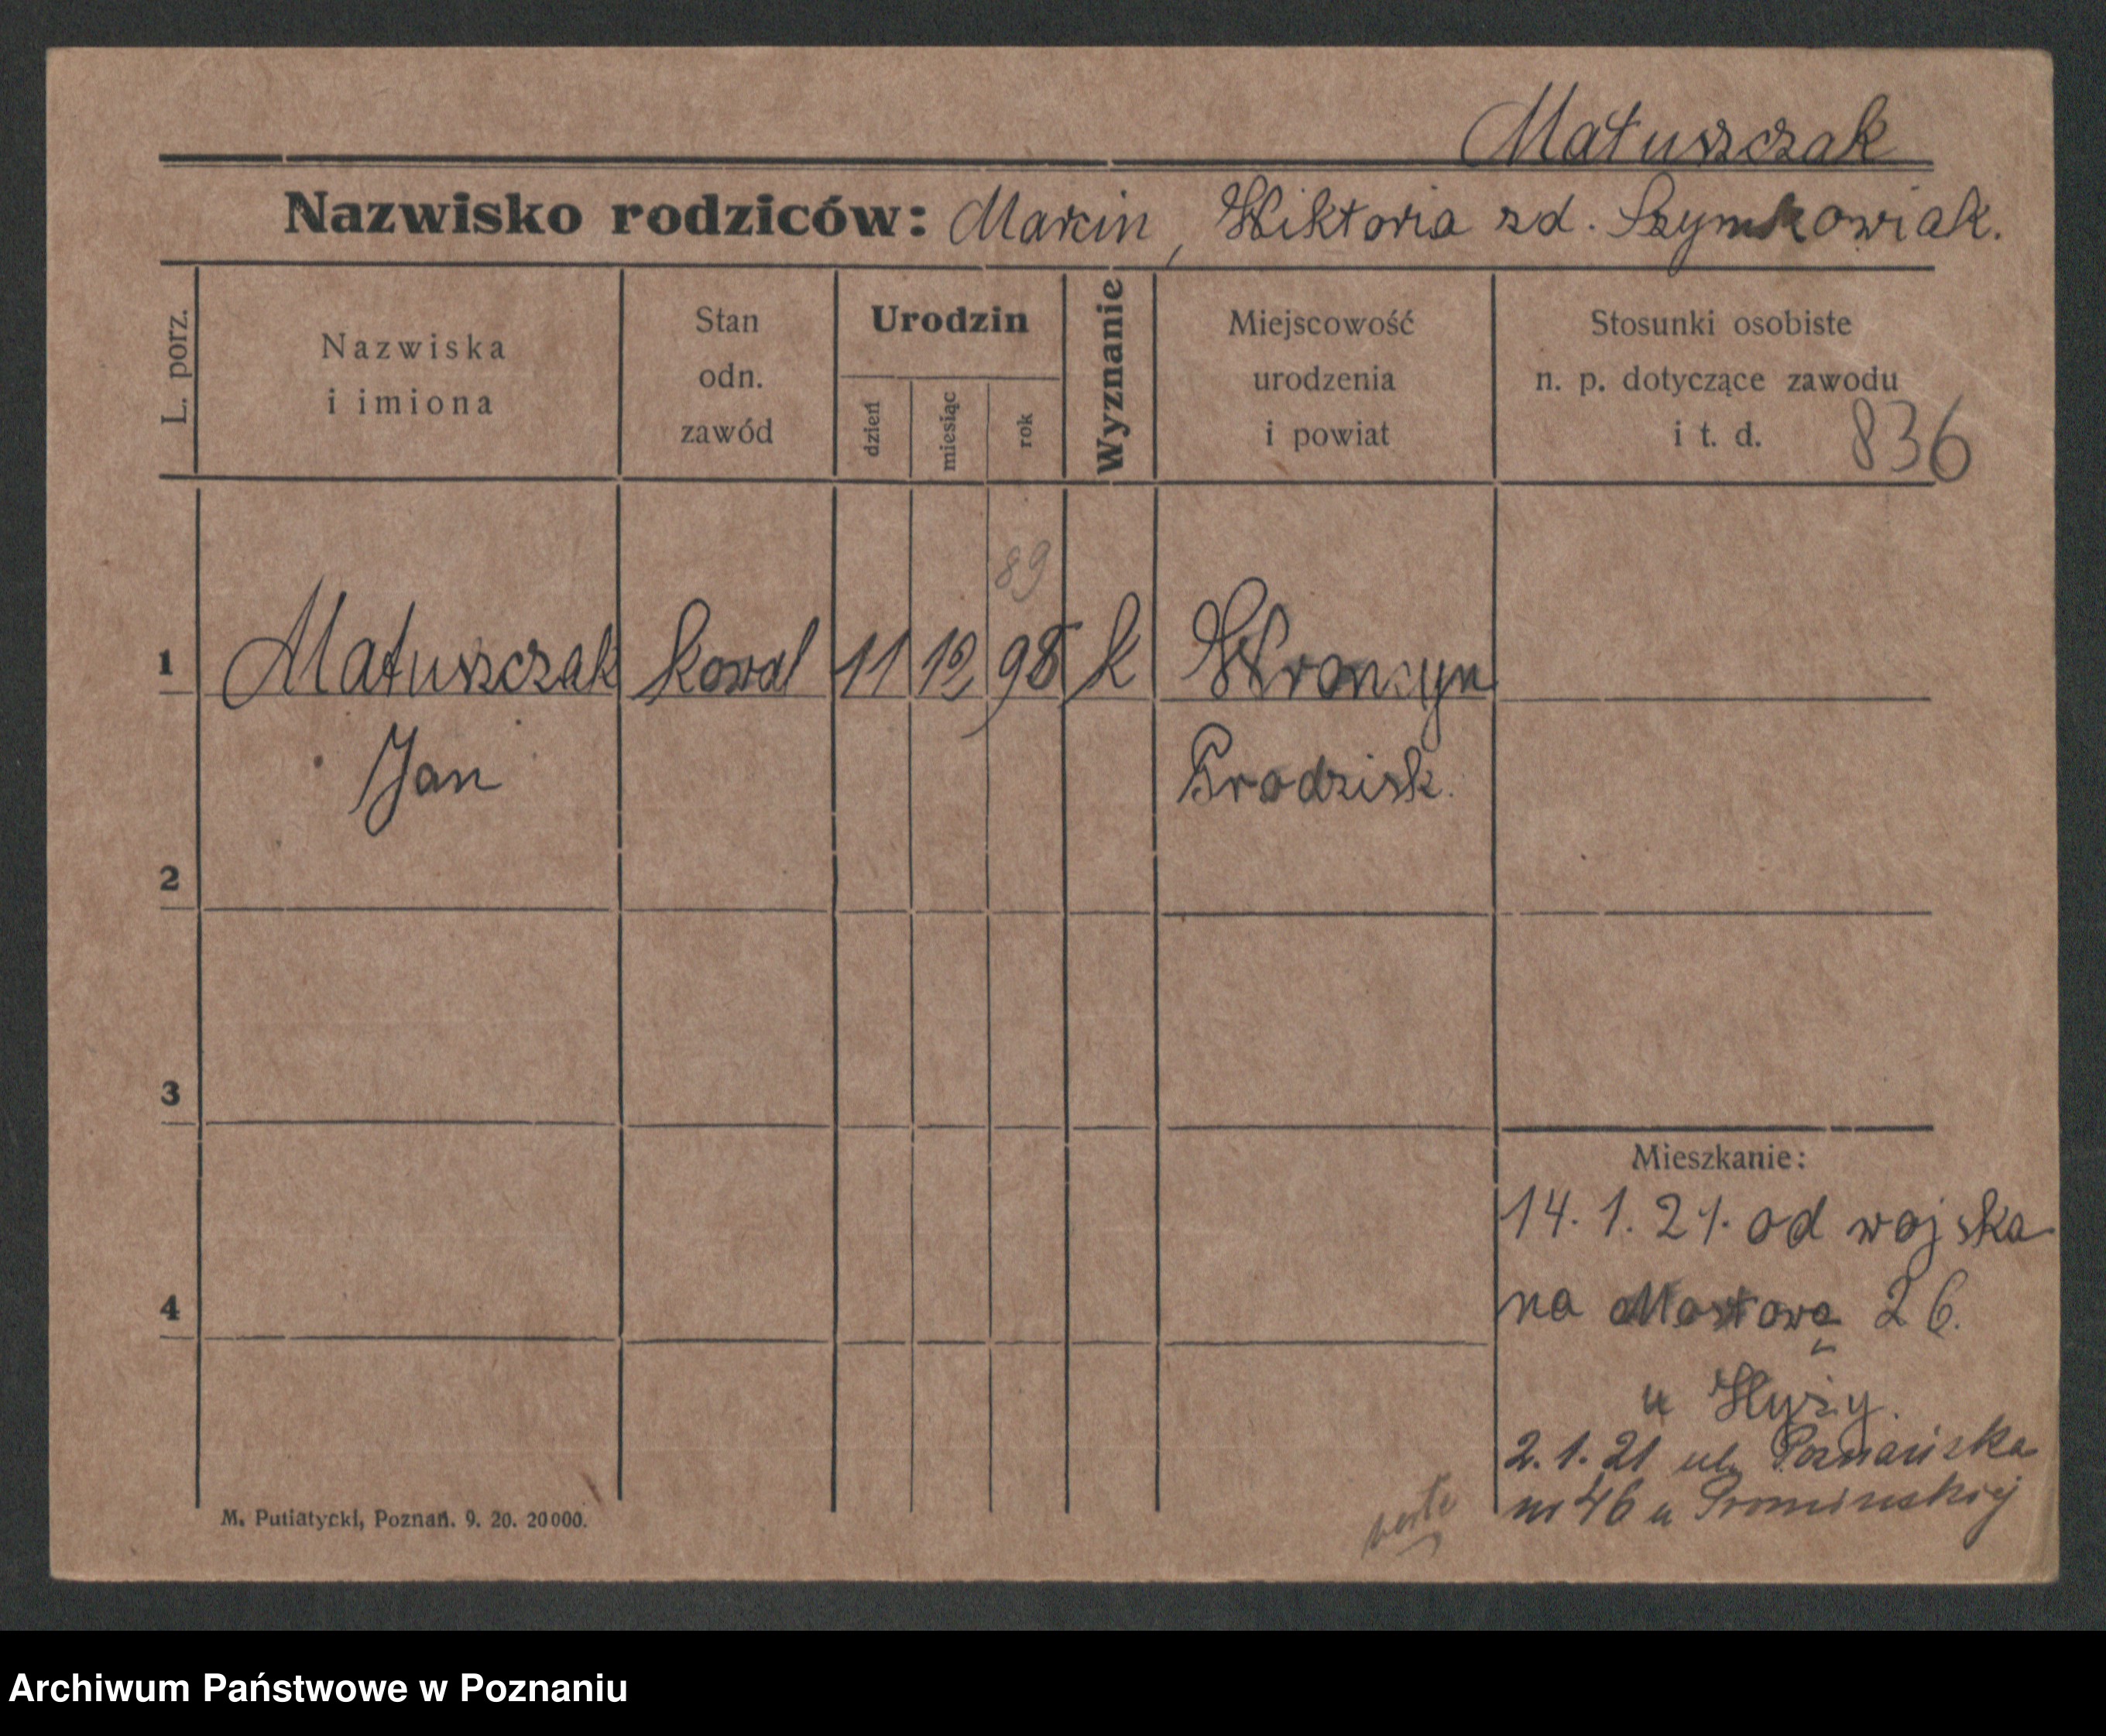 Matuszczak
Nazwisko rodziców: Marcin, Wiktoria zd. Szymkowiak.
L. porz.
Nazwiska
i imiona
Stan
odn.
zawód
Urodzin
dzień
miesiąc
rok
Wyznanie
Miejscowość
urodzenia
i powiat
Stosunki osobiste
n. p. dotyczące zawodu
i t. d.
836
89
1 Matuszczak kowal 11 12 98 k Wronczyn
Jan Grodzisk.
2
3
4
Mieszkanie:
14. 1. 21. od wojska
na Mostową 26.
u Hyży.
2. 1. 21 ul. Poznańska
nr 46 u
verte
M. Putiatycki, Poznań. 9. 20. 20000.
Archiwum Państwowe w Poznaniu